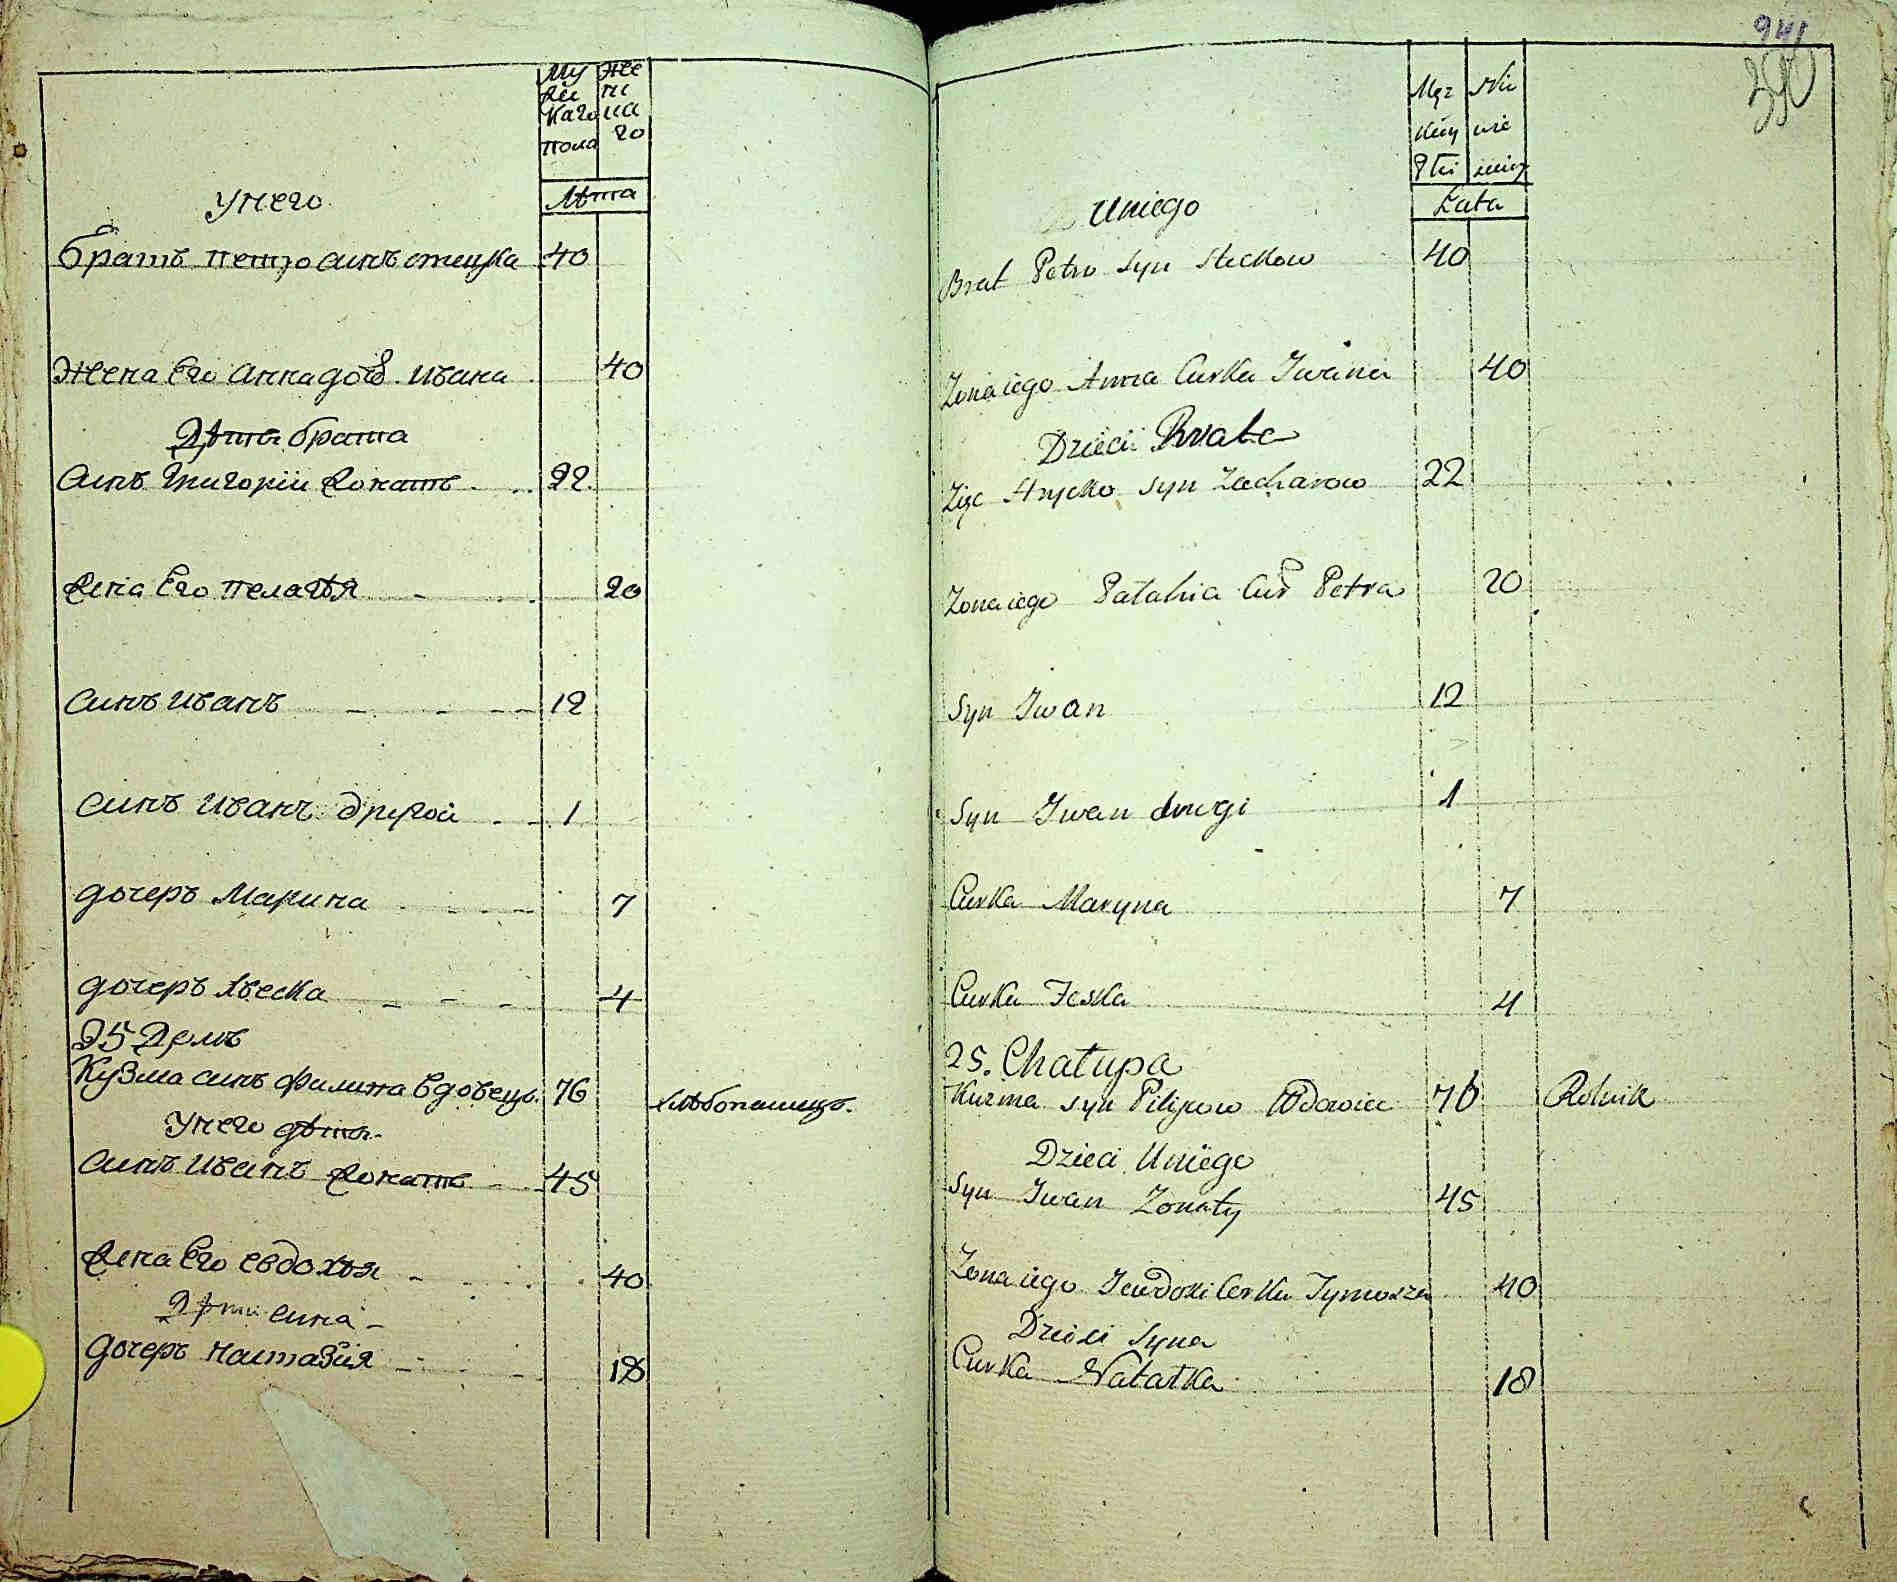 Му
жес
каго
пола
Же
ни
на
го
Лѣта
Унего
братъ петро синъ стецка 40
Жена Его анна доч. ивана 40
Дѣти брата
синъ григорій жонатъ 22
жена Его пелагѣя 20
синъ иванъ 12
синъ иванъ другой 1
дочеръ Марина 7
дочеръ 4
25 Домъ
Кузма синъ филипа вдовецъ 76 хлѣбопашецъ.
Унего дѣти
синъ иванъ жонатъ 45
жена Его евдохѣя 40
Дѣти сина
дочеръ настазия 18
941
Męz
kiey
Płci
Lata
Uniego
Brat Petro Syn Steckow 40
Zona iego Anna Curka Iwana 40
Dzieci Brata
Zięc Hrycko Syn Zacharow 22
Zona iego Palahia Cur Petra 20
Syn Iwan 12
Syn Iwan drugi 1
Curka Maryna 7
Curka Jeska 4
25. Chałupa
Kuzma syn Pilipow Wdowiec 76 Rolnik
Dzieci Uniego
Syn Iwan Zonaty 45
Zona iego Jewdoki Curka Tymosza 40
Dzieci Syna
Curka Natałka 18